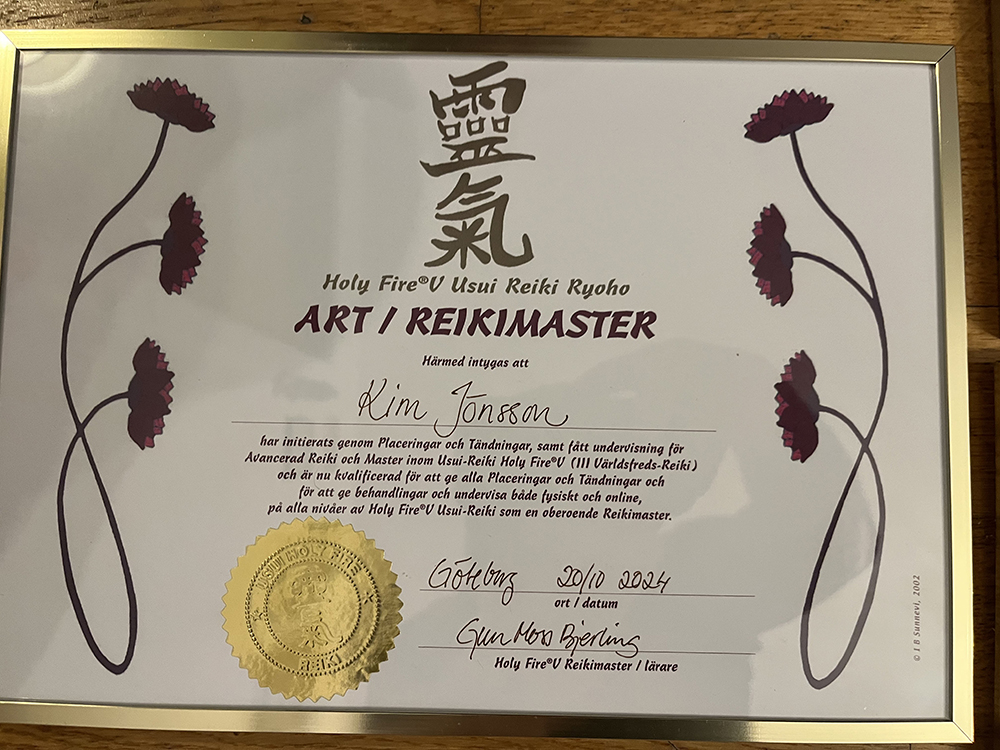 靈
氣
Holy Fire®V Usui Reiki Ryoho
ART / REIKIMASTER
Härmed intygas att
Kim Jonsson
har initierats genom Placeringar och Tändningar, samt fått undervisning för
Avancerad Reiki och Master inom Usui-Reiki Holy Fire®V (III Världsfreds-Reiki)
och är nu kvalificerad för att ge alla Placeringar och Tändningar och
för att ge behandlingar och undervisa både fysiskt och online,
på alla nivåer av Holy Fire®V Usui-Reiki som en oberoende Reikimaster.
USUI HOLY FIRE
靈
氣
REIKI
Göteborg 20/10 2024
ort / datum
Gun Moss Bjerling
Holy Fire®V Reikimaster / lärare
© I B Sunnevi, 2002